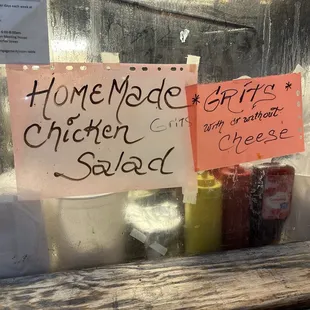 HOMEMade
Chicken
Salad
Grits
*GRITS*
with or without
Cheese